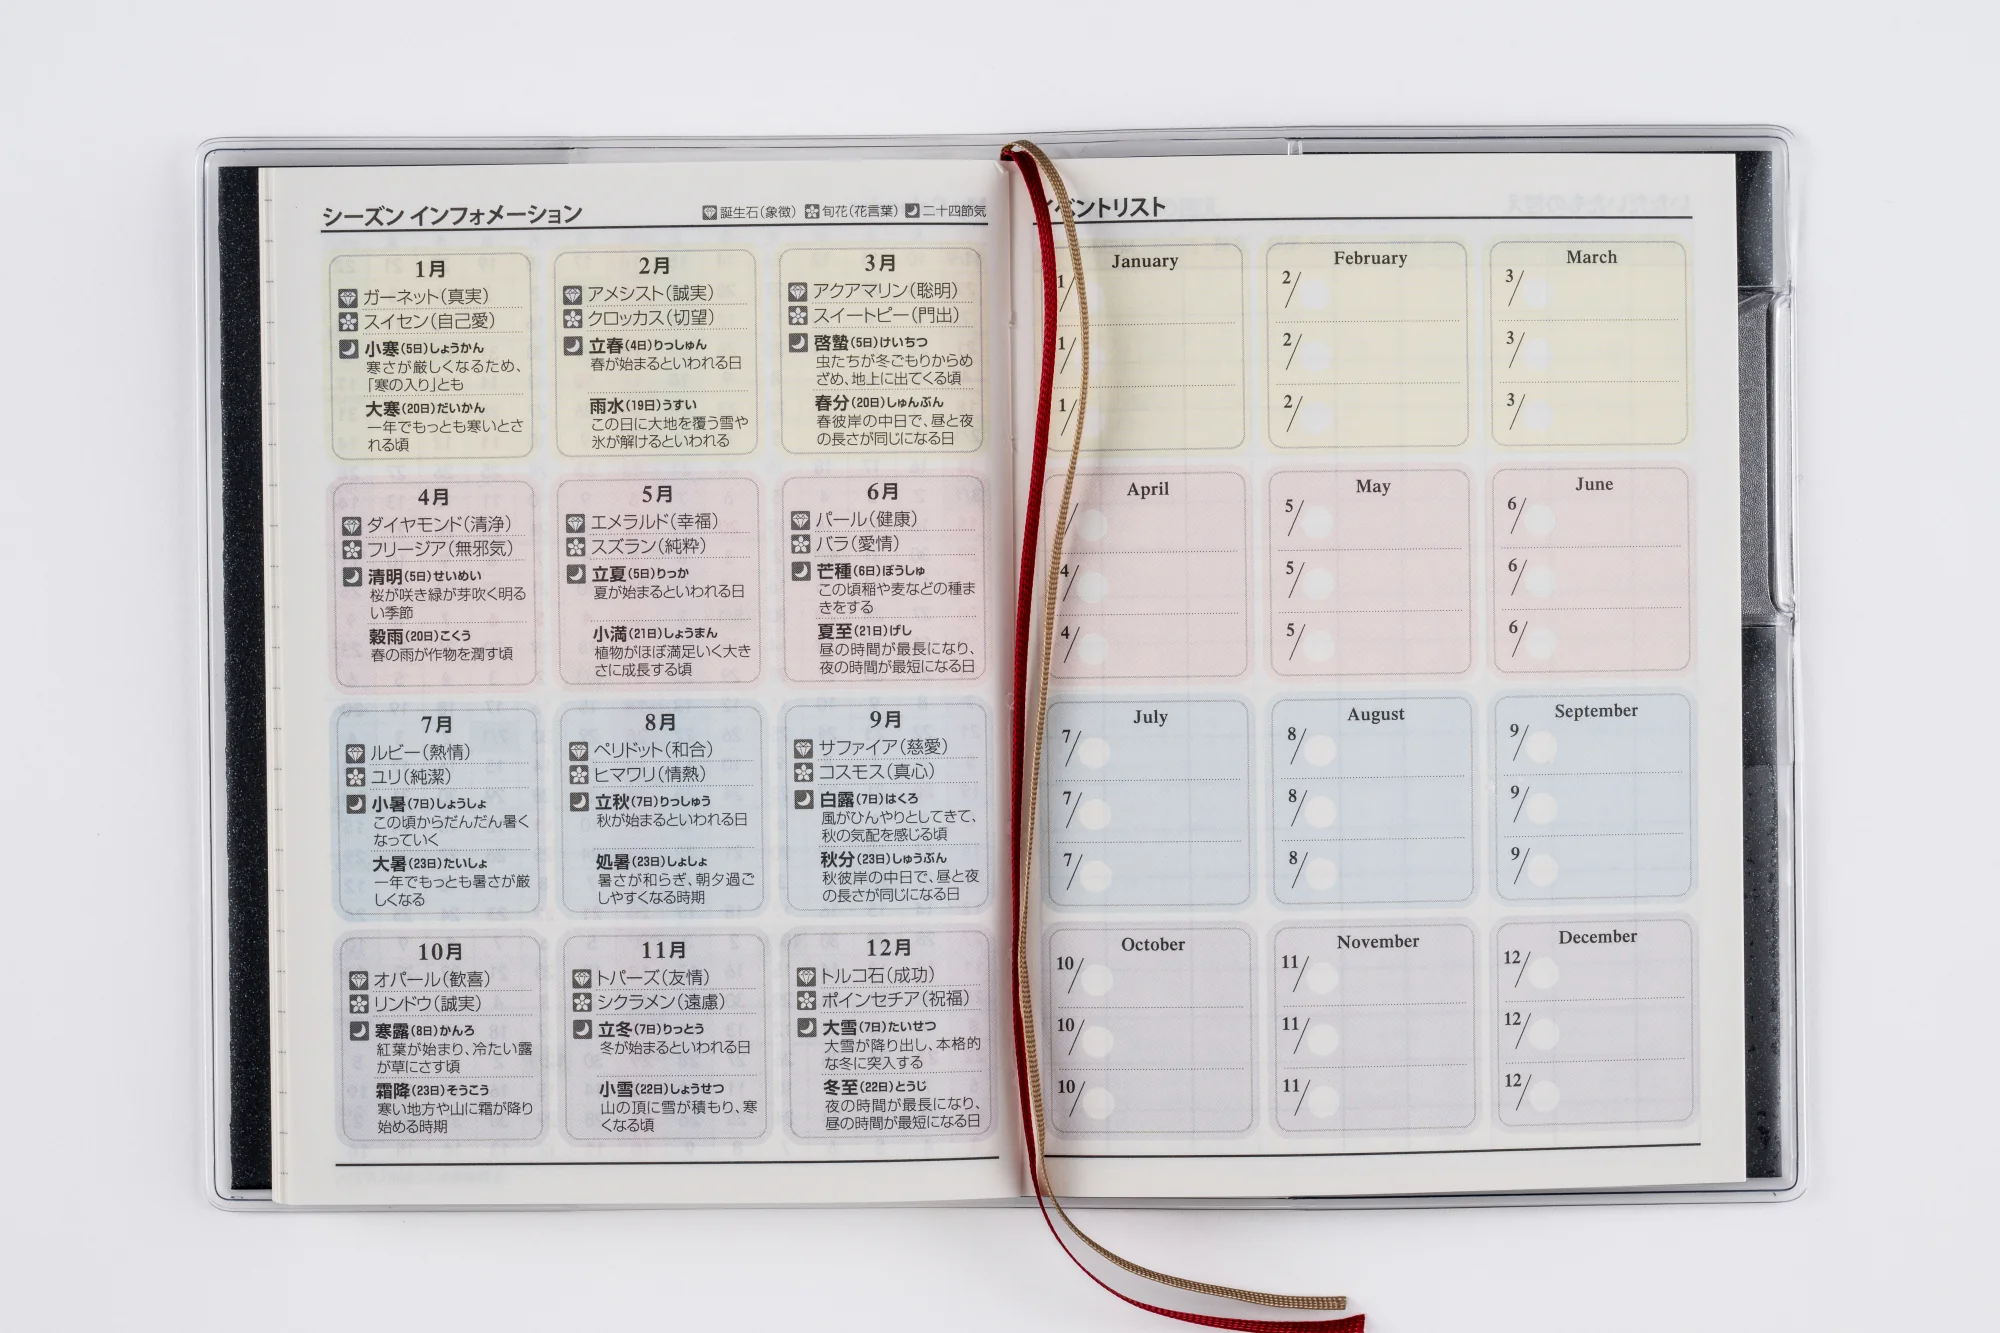 シーズン インフォメーション
誕生石（象徴） 旬花（花言葉） 二十四節気
1月
ガーネット（真実）
スイセン（自己愛）
小寒（5日）しょうかん
寒さが厳しくなるため、
「寒の入り」とも
大寒（20日）だいかん
一年でもっとも寒いとさ
れる頃
2月
アメシスト（誠実）
クロッカス（切望）
立春（4日）りっしゅん
春が始まるといわれる日
雨水（19日）うすい
この日に大地を覆う雪や
氷が解けるといわれる
3月
アクアマリン（聡明）
スイートピー（門出）
啓蟄（5日）けいちつ
虫たちが冬ごもりからめ
ざめ、地上に出てくる頃
春分（20日）しゅんぶん
春彼岸の中日で、昼と夜
の長さが同じになる日
4月
ダイヤモンド（清浄）
フリージア（無邪気）
清明（5日）せいめい
桜が咲き緑が芽吹く明る
い季節
穀雨（20日）こくう
春の雨が作物を潤す頃
5月
エメラルド（幸福）
スズラン（純粋）
立夏（5日）りっか
夏が始まるといわれる日
小満（21日）しょうまん
植物がほぼ満足いく大き
さに成長する頃
6月
パール（健康）
バラ（愛情）
芒種（6日）ぼうしゅ
この頃稲や麦などの種ま
きをする
夏至（21日）げし
昼の時間が最長になり、
夜の時間が最短になる日
7月
ルビー（熱情）
ユリ（純潔）
小暑（7日）しょうしょ
この頃からだんだん暑く
なっていく
大暑（23日）たいしょ
一年でもっとも暑さが厳
しくなる
8月
ペリドット（和合）
ヒマワリ（情熱）
立秋（7日）りっしゅう
秋が始まるといわれる日
処暑（23日）しょしょ
暑さが和らぎ、朝夕過ご
しやすくなる時期
9月
サファイア（慈愛）
コスモス（真心）
白露（7日）はくろ
風がひんやりとしてきて、
秋の気配を感じる頃
秋分（23日）しゅうぶん
秋彼岸の中日で、昼と夜
の長さが同じになる日
10月
オパール（歓喜）
リンドウ（誠実）
寒露（8日）かんろ
紅葉が始まり、冷たい露
が草にさす頃
霜降（23日）そうこう
寒い地方や山に霜が降り
始める時期
11月
トパーズ（友情）
シクラメン（遠慮）
立冬（7日）りっとう
冬が始まるといわれる日
小雪（22日）しょうせつ
山の頂に雪が積もり、寒
くなる頃
12月
トルコ石（成功）
ポインセチア（祝福）
大雪（7日）たいせつ
大雪が降り出し、本格的
な冬に突入する
冬至（22日）とうじ
夜の時間が最長になり、
昼の時間が最短になる日
ベントリスト
January
1/
1/
1/
February
2/
2/
2/
March
3/
3/
3/
April
/
4/
4/
May
5/
5/
5/
June
6/
6/
6/
July
7/
7/
7/
August
8/
8/
8/
September
9/
9/
9/
October
10/
10/
10/
November
11/
11/
11/
December
12/
12/
12/